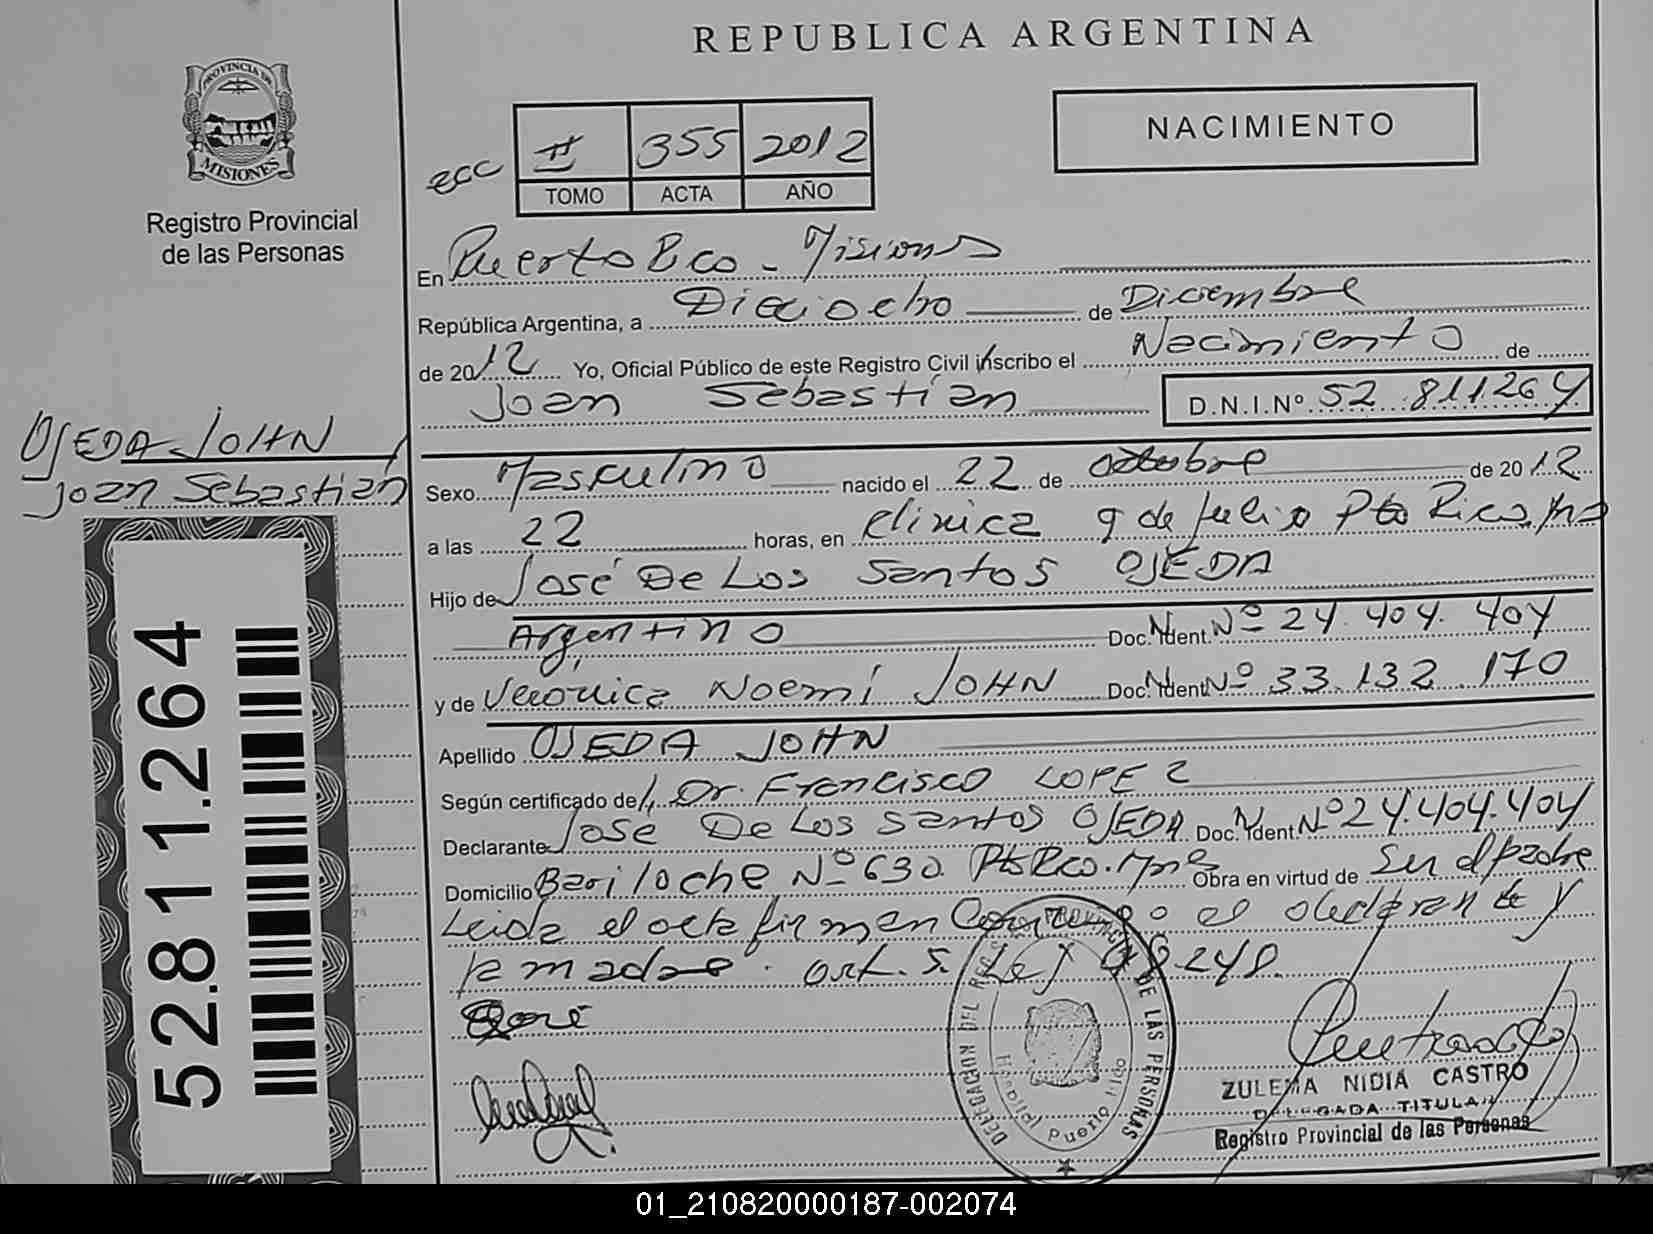 REPUBLICA ARGENTINA
PROVINCIA DE
MISIONES
Registro Provincial
de las Personas
NACIMIENTO
ecc II 355 2012
TOMO ACTA AÑO
En Puerto Rico - Misiones
República Argentina, a Dieciocho de Diciembre
de 2012 Yo, Oficial Público de este Registro Civil inscribo el Nacimiento de
Joan Sebastián D.N.I.Nº 52.811264
OJEDA JOHN
Joan Sebastián
Sexo Masculino nacido el 22 de Octubre de 2012
a las 22 horas, en Clinica 9 de Julio Pto Rico, Mns
Hijo de José De Los Santos OJEDA
Argentino Doc. Ident. Nº 24.404.404
y de Verónica Noemí JOHN Doc. Ident. Nº 33.132.170
Apellido OJEDA JOHN
Según certificado del Dr. Francisco LOPEZ
Declarante José De Los Santos OJEDA Doc. Ident. Nº 24.404.404
Domicilio Bariloche Nº 630. Pto Rico. Mns Obra en virtud de Ser el padre
Leida el acta firman Conmigo el declarante y
la madre. art. 5. Ley 18.248.
José
52.811.264
DELEGACION DEL REG. PROVINCIAL DE LAS PERSONAS
Hospital Puerto Rico
ZULEMA NIDIA CASTRO
DELEGADA TITULAR
Registro Provincial de las Personas
01_210820000187-002074